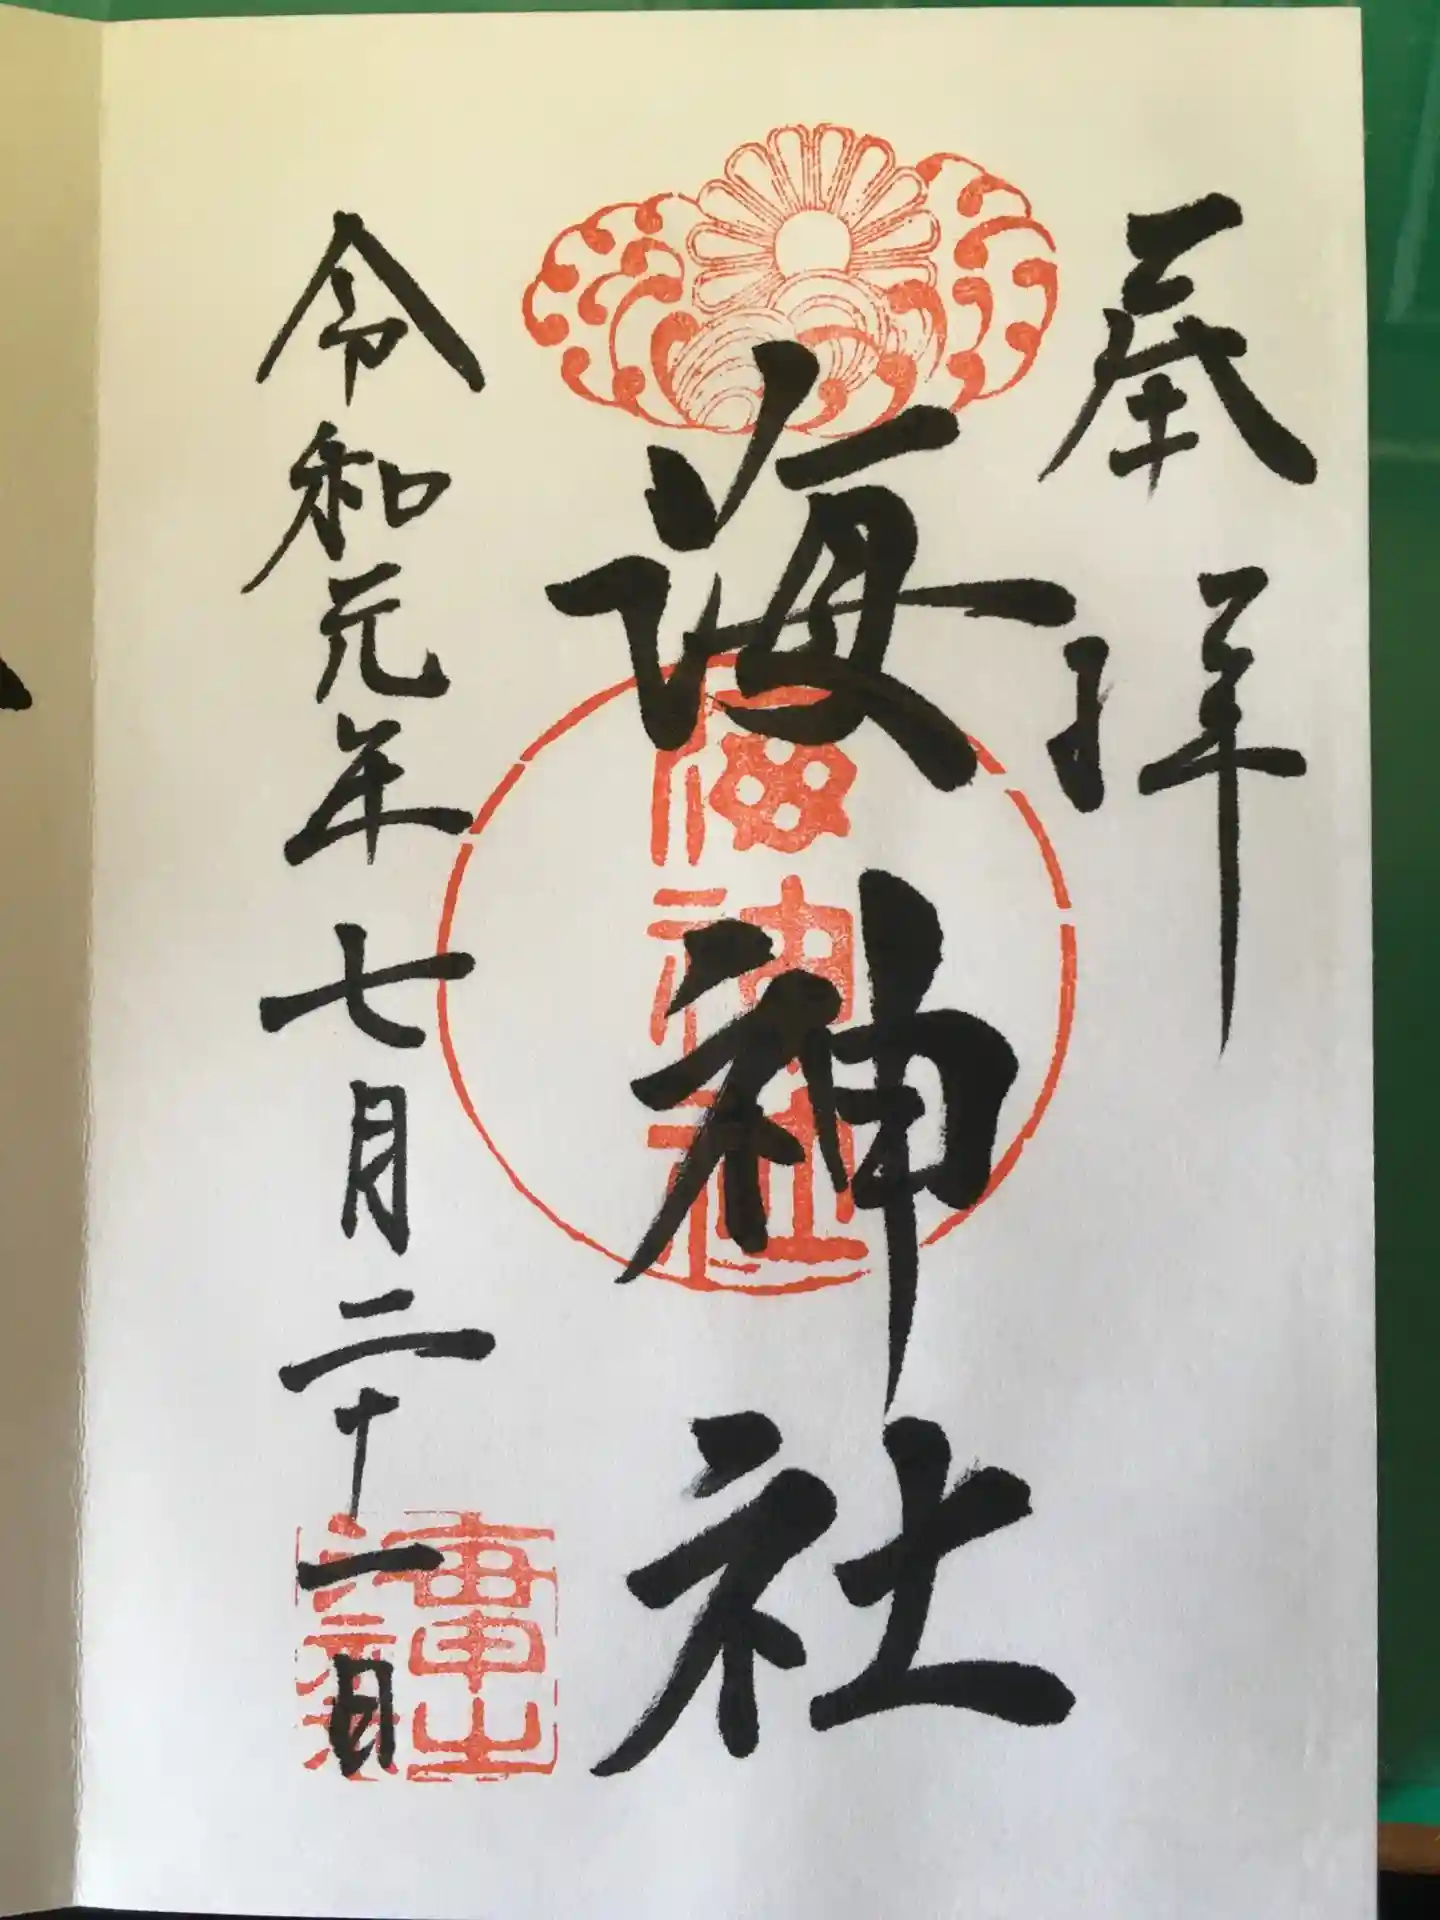 奉拝
海神社
海神社
令和元年七月二十一日